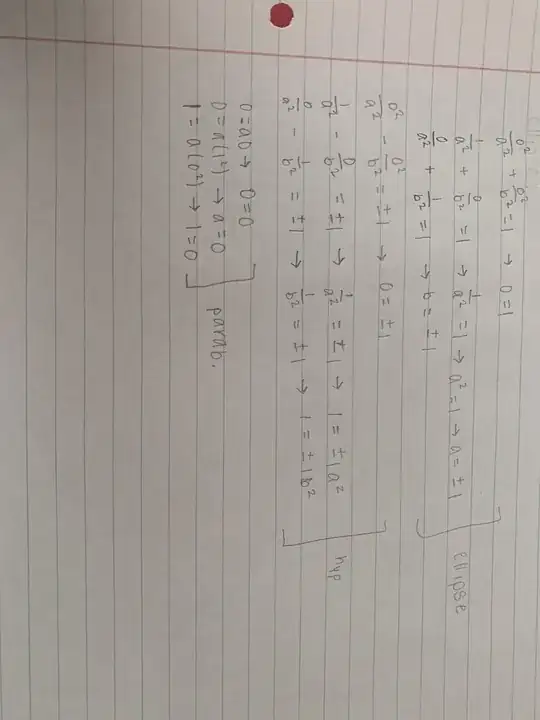 0²/a² + 0²/b² = 1 → 0 = 1
1/a² + 0/b² = 1 → 1/a² = 1 → a² = 1 → a = ±1
0/a² + 1/b² = 1 → b = ±1
ellipse
0²/a² - 0²/b² = ±1 → 0 = ±1
1/a² - 0/b² = ±1 → 1/a² = ±1 → 1 = ±1a²
0/a² - 1/b² = ±1 → 1/b² = ±1 → 1 = ±1b²
hyp
0 = a0 → 0 = 0
0 = a(1²) → a = 0
1 = a(0²) → 1 = 0
parab.